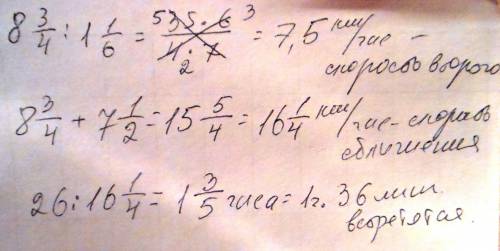 8 3/4 : 1 1/6 = 35·6/4·7 5 3 2 = 7,5 км/час – скорость второго
8 3/4 + 7 1/2 = 15 5/4 = 16 1/4 км/час – скорость сближения
26 : 16 1/4 = 1 3/5 часа = 1 ч. 36 мин. встретятся.